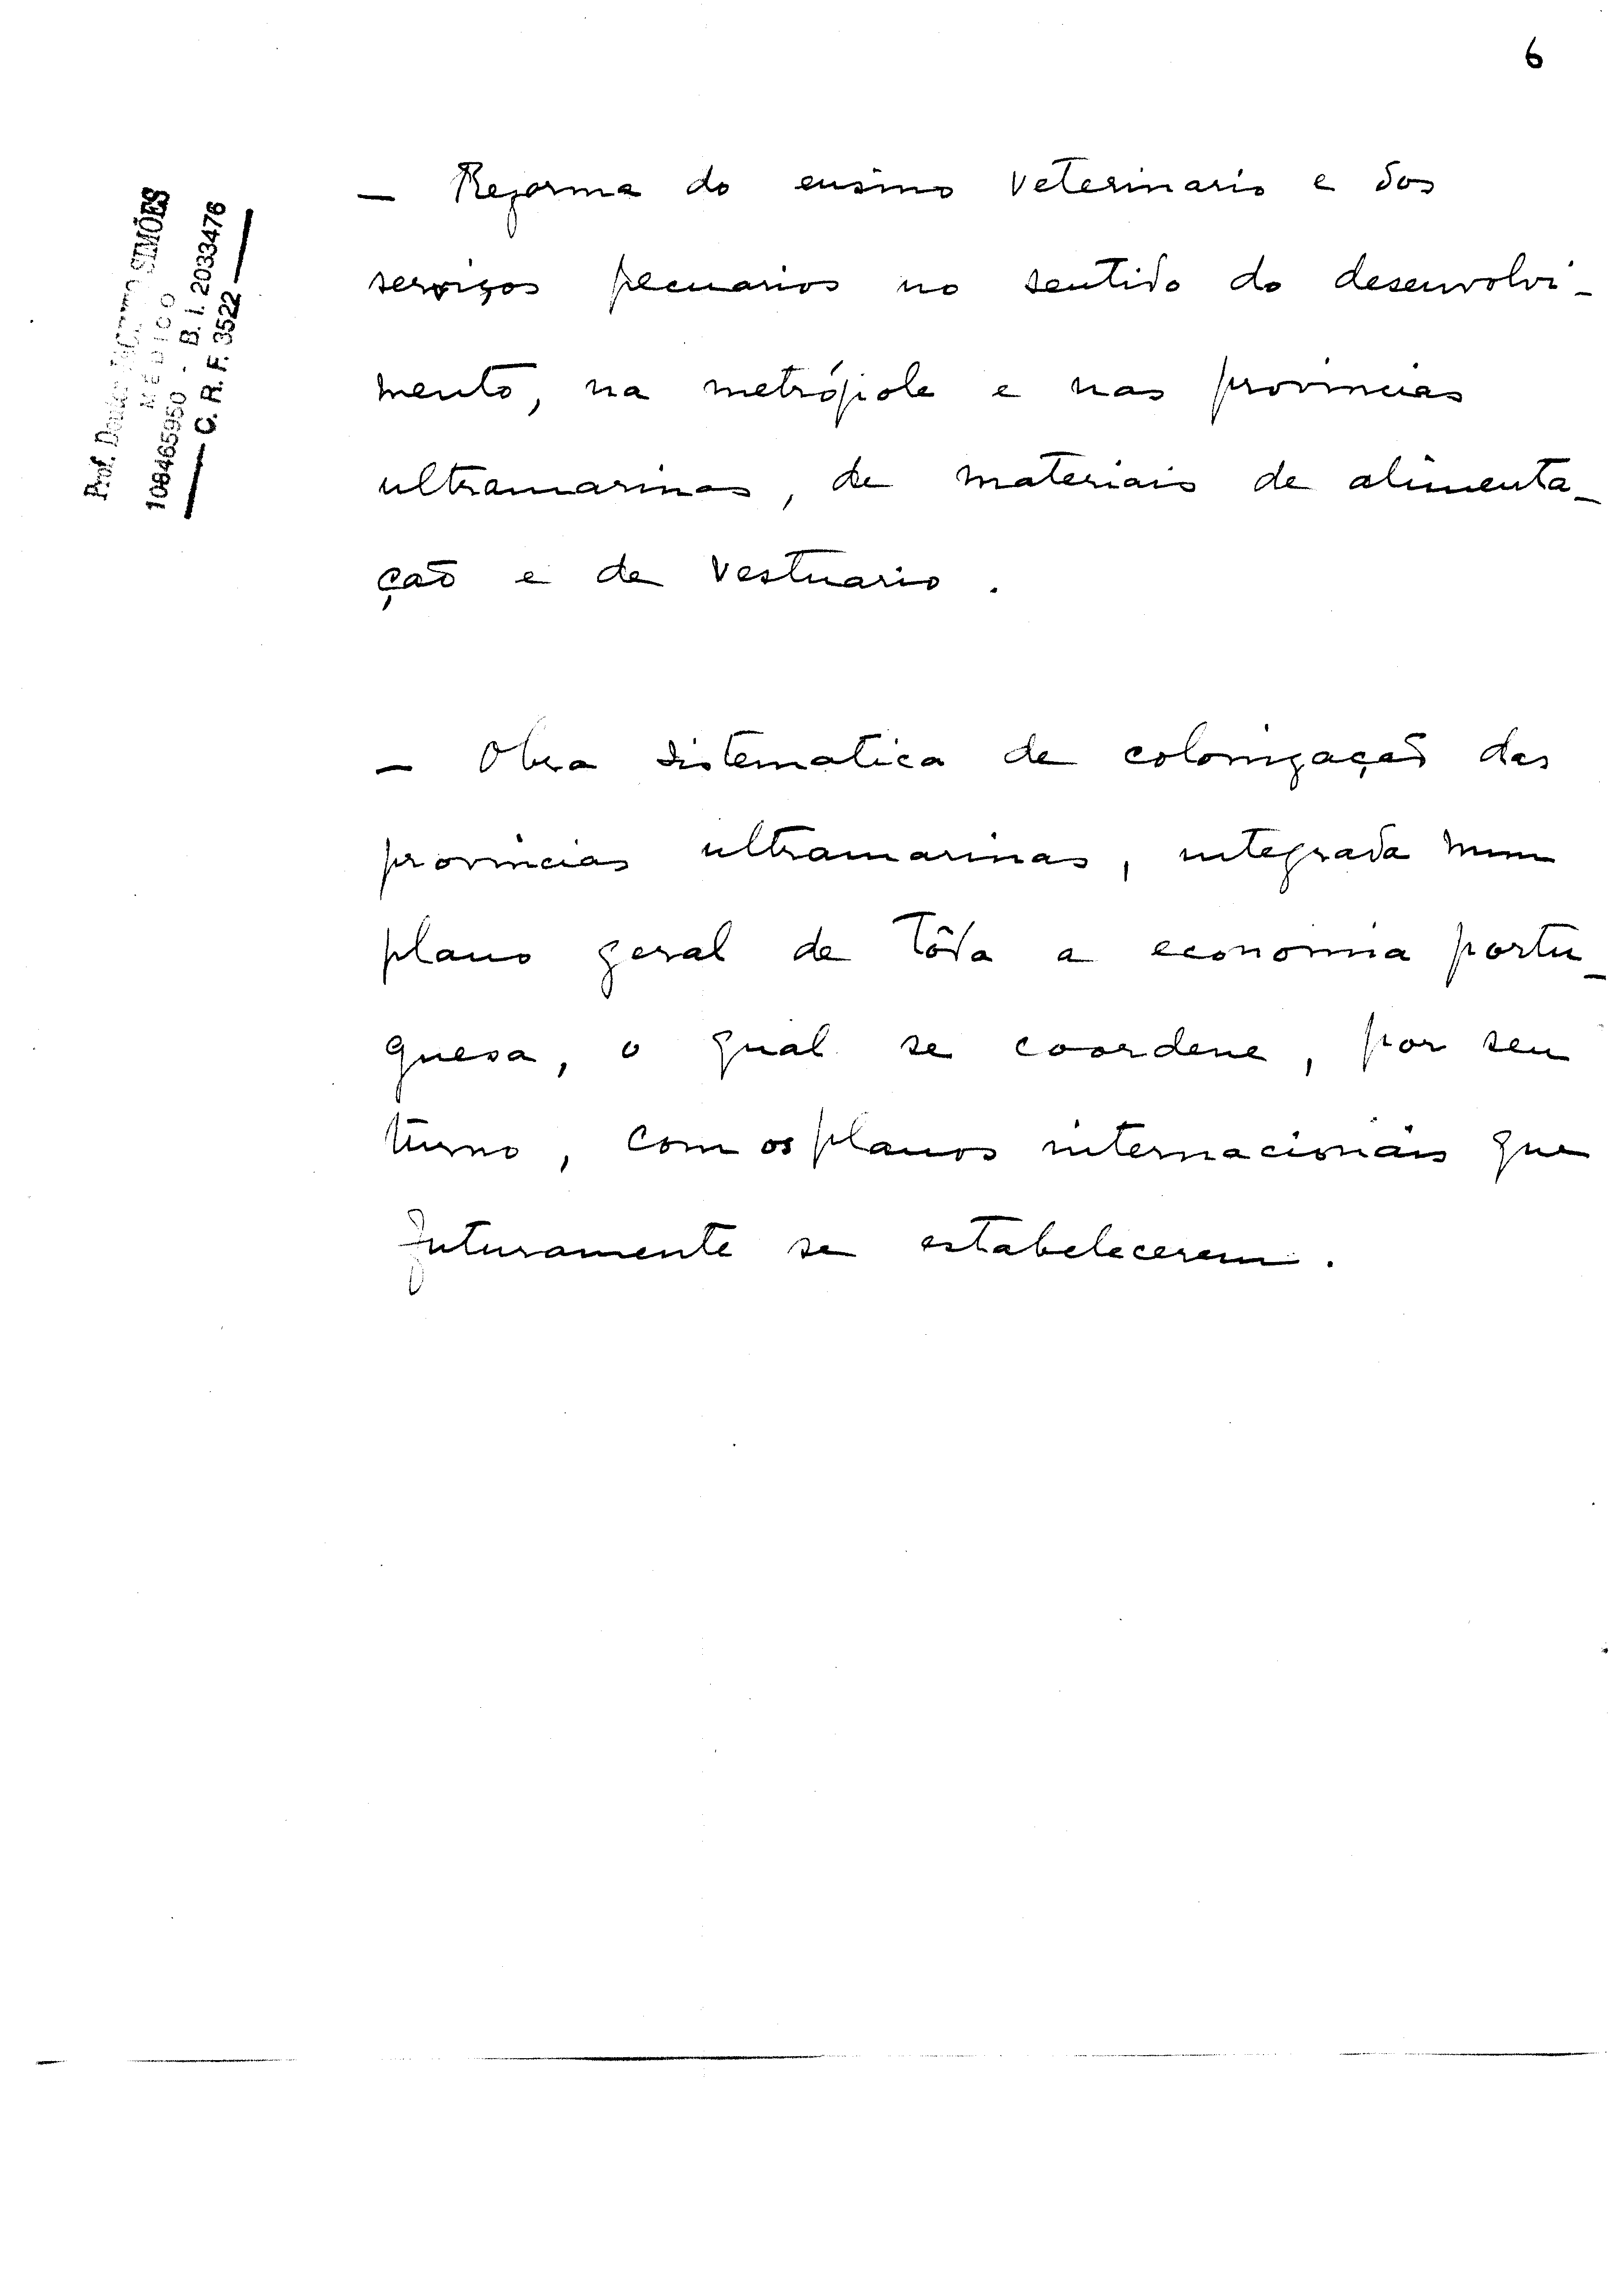 6
Prof. Doutor SIMÕES
MÉDICO
108465950 - B. I. 2033476
C. R. F. 3522
— Reforma do ensino veterinario e dos
serviços pecuarios no sentido do desenvolvi-
mento, na metrópole e nas provincias
ultramarinas, de materiais de alimenta-
ção e de vestuario.
— Obra sistematica de colonização das
provincias ultramarinas, integrada num
plano geral de tôda a economia portu-
guesa, o qual se coordene, por seu
turno, com os planos internacionais que
futuramente se estabelecerem.